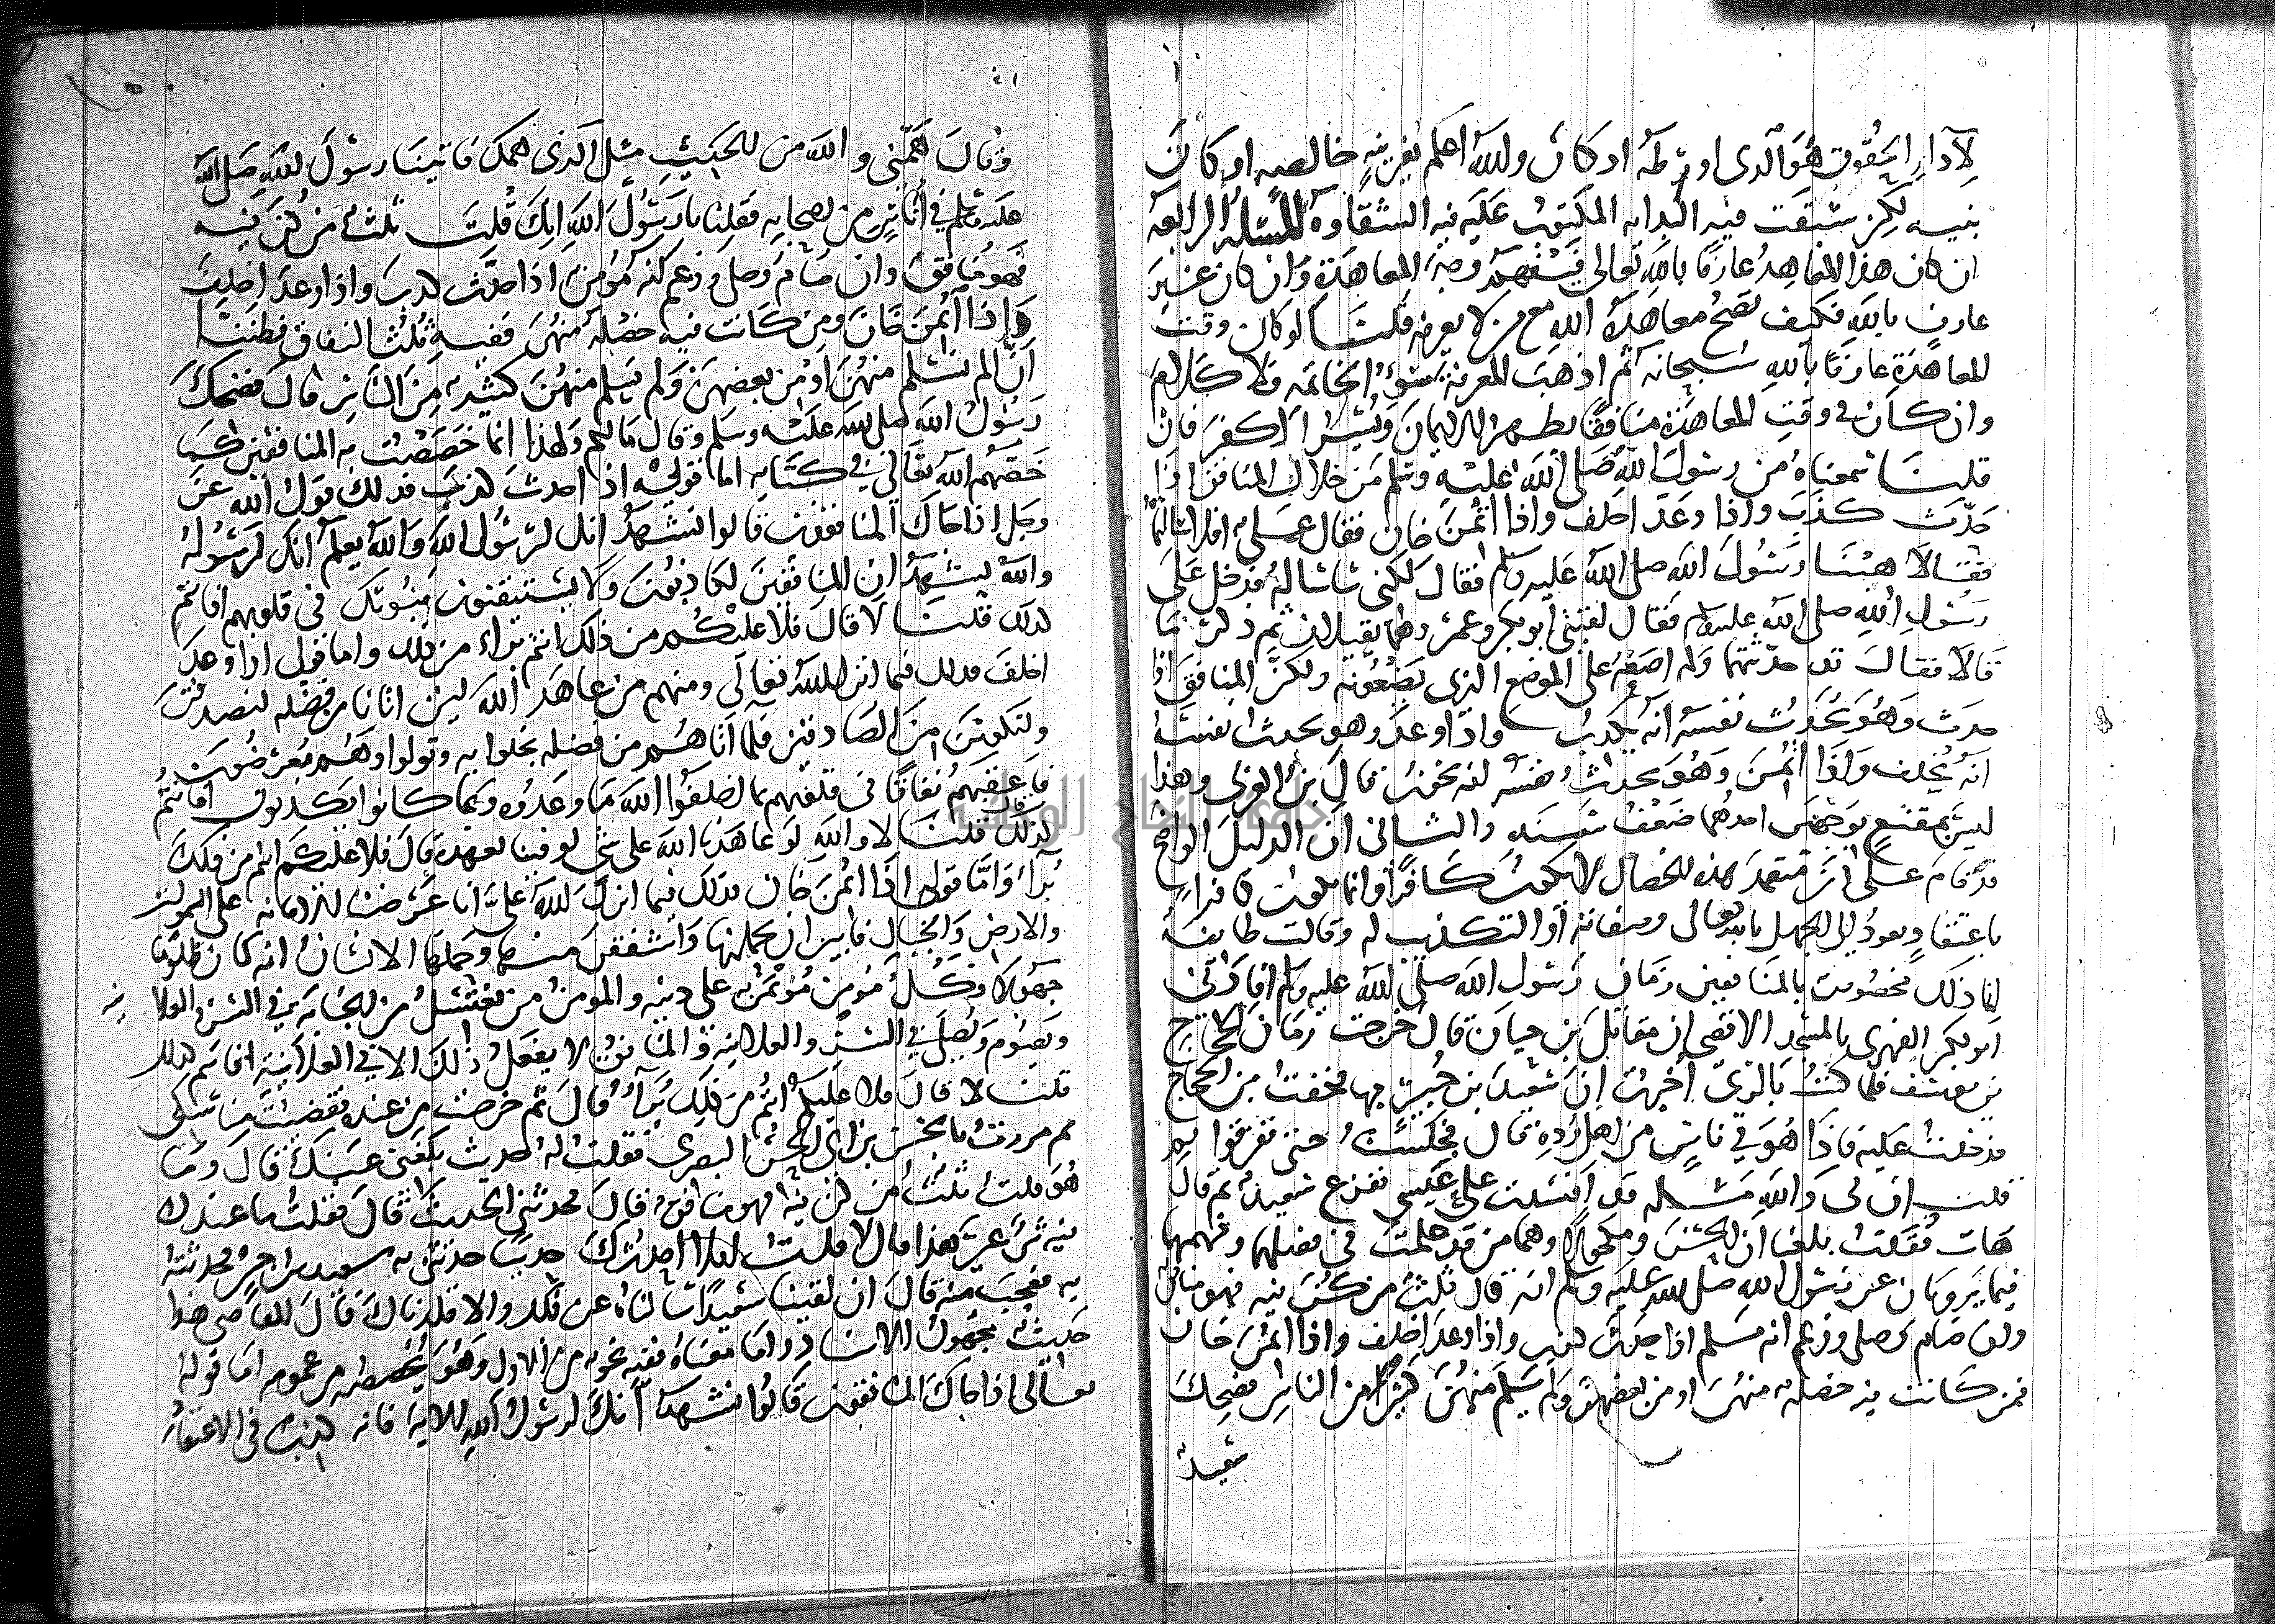 لآداء الحقوق هو الذى اورطه اذ كان والله اعلم بغير نيه خالصه او كان
بنيه لكن سبقت فيه البدايه المكتوب عليه فيه الشقاوه المسئله الرابعه
ان كان هذا المعاهد عارفا بالله تعالى فيفهم وجه المعاهدة وان كان غير
عارف بالله فكيف تصح معاهدة الله مع من لا يعرفه قلنا لو كان وقت
المعاهدة عارفا بالله سبحانه ثم اذهب المعرفة بسوء الخاتمه فلا كلام
وان كان فى وقت المعاهدة منافقا يظهر الايمان ويسر الكفر فان
قلنا سمعناه من رسول الله صلى الله عليه وسلم من خلال المنافق اذا
حدث كذب واذا وعد اخلف واذا ائتمن خان فقال على افلا سالتما
فقالا هبنا رسول الله صلى الله عليه وسلم فقال لكنى سأساله فدخل على
رسول الله صلى الله عليه وسلم فقال لقينى ابو بكر وعمر وهما ثقيلان ثم ذكر ما
قالا فقال قد حدثتهما ولم اضعه على الموضع الذى يضعونه ولكن المنافق اذا
حدث وهو يحدث نفسه انه يكذب واذا وعد وهو يحدث نفسه
انه يخلف واذا ائتمن وهو يحدث نفسه انه يخون قال بن العربى وهذا
ليس بمقنع بوجهين احدهما ضعف سنده والثانى ان الدليل الواضح
قد قام على ان متعمد هذه الخصال لا يكون كافرا وانما يكون كافرا
باعتقاد يعود الى الجهل بالله تعالى وصفاته او التكذيب له وقالت طايفة
انما ذلك مخصوص بالمنافقين زمان رسول الله صلى الله عليه وسلم افادنى
ابو بكر الفهرى بالمسجد الاقصى ان مقاتل بن حيان قال خرجت زمان الحجاج
بن يوسف فلما كنت بالرى اخبرت ان سعيد بن جبير بها مختف من الحجاج
فدخلت عليه فاذا هو فى ناس من اهل وده قال فجلست حتى تفرقوا ثم
قلت ان لى والله مسئلة قد افسدت على عيشى ففزع سعيد ثم قال
هات فقلت بلغنا ان الحسن ومكحولا وهما من قد علمت فى فضلهما وفهمهما
فيما يرويان عن رسول الله صلى الله عليه وسلم انه قال ثلث من كن فيه فهو منافق
وان صام وصلى وزعم انه مسلم اذا حدث كذب واذا وعد اخلف واذا ائتمن خان
فمن كانت فيه خصلة منهن او من بعضهن ولم يسلم منهن كثير من الناس فضحك
سعيد
وقال همنى والله من الحديث مثل الذى همك فاتينا رسول الله صلى الله
عليه وسلم فى اناس من اصحابه فقلنا يا رسول الله انك قلت ثلث من كن فيه
فهو منافق وان صام وصلى وزعم انه مؤمن اذا حدث كذب واذا وعد اخلف
واذا ائتمن خان ومن كانت فيه خصلة منهن ففيه ثلث النفاق فظننا
انا لم نسلم منهن او من بعضهن ولم يسلم منهن كثير من الناس قال فضحك
رسول الله صلى الله عليه وسلم وقال مالكم ولهذا انما خصصت به المنافقين كما
خصهم الله تعالى فى كتابه اما قولى اذا حدث كذب فذلك قول الله عز
وجل اذا جاك المنافقون قالوا نشهد انك لرسول الله والله يعلم انك لرسوله
والله يشهد ان المنافقين لكاذبون لا يستيقنون نبوتك فى قلوبهم افانتم
كذلك قلنا لا قال فلا عليكم من ذلك انتم براء من ذلك واما قولى اذا وعد
اخلف فذلك فيما انزل الله تعالى ومنهم من عاهد الله لين اتانا من فضله لنصدقن
ولنكونن من الصادقين فلما اتاهم من فضله بخلوا به وتولوا وهم معرضون
فاعقبهم نفاقا فى قلوبهم بما اخلفوا الله ما وعدوه وبما كانوا يكذبون افانتم
كذلك قلنا لا والله لو عاهدنا الله على شى لوفينا بعهده قال فلا عليكم انتم من ذلك
برآء واما قولى اذا ائتمن خان فذلك فيما انزل الله على انا عرضنا الامانه على السموات
والارض والجبال فابين ان يحملنها واشفقن منها وحملها الانسان انه كان ظلوما
جهولا فكل مومن مؤتمن على دينه والمومن من يغتسل من الجنابة فى السر والعلانيه
ويصوم ويصلى فى السر والعلانيه والمنافق لا يفعل ذلك الا فى العلانية افانتم كذلك
قلنا لا قال فلا عليكم انتم من ذلك برآء قال ثم خرجت من عنده فقضيت مناسكى
ثم مررت بالحسن بن ابى الحسن البصرى فقلت له حديث بلغنى عنك قال وما
هو قلت ثلث من كن فيه فهو منافق قال فحدثنى الحديث قال فقلت ما عندك
فيه شى غير هذا قال لا قلت افلا احدثك حديث حدثنى به سعيد بن جبير فحدثته
به فعجب منه قال ان لقينا سعيدا سالناه عن ذلك والا قلدناك قال القاضى هذا
حديث مجهول الاسناد واما معناه ففيه نحو من الاول وهو تخصيصه من عمومه اما قوله
تعالى اذا جاك المنافقون قالوا نشهد انك لرسول الله الاية فانه كذب فى الاعتقاد